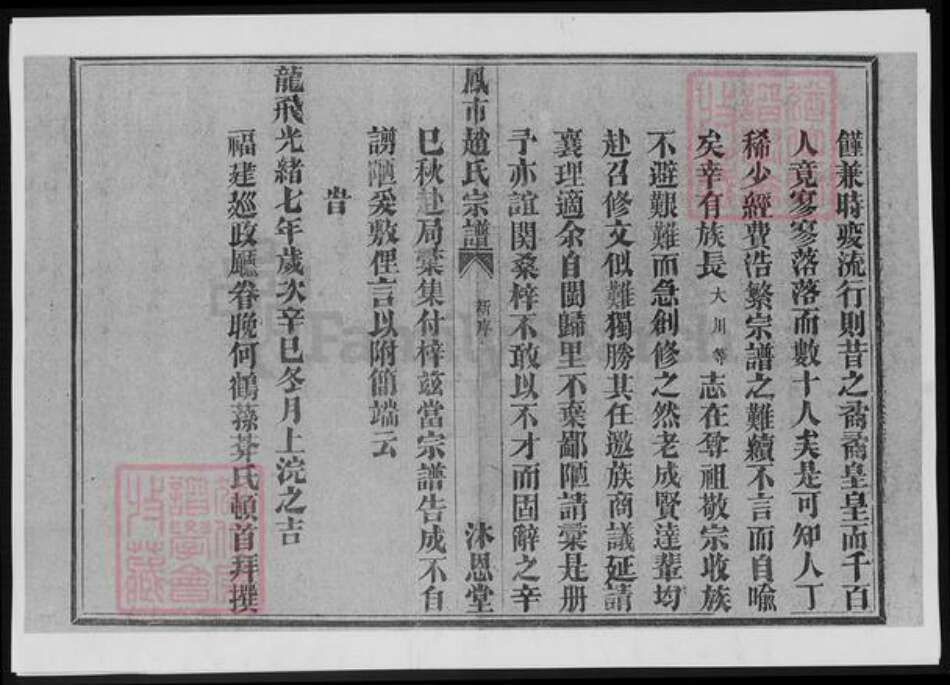 饉兼時疫流行則昔之矞矞皇皇而千百
人竟寥寥落落而數十人矣是可知人丁
稀少經費浩繁宗譜之難續不言而自喻
矣幸有族長大川等志在尊祖敬宗收族
不避艱難而急創修之然老成賢達輩均
赴召修文似難獨勝其任邀族商議延請
襄理適余自閩歸里不棄鄙陋請彙是册
予亦誼関桑梓不敢以不才而固辭之辛
鳳市趙氏宗譜 新序 沐恩堂
巳秋赴局彙集付梓兹當宗譜告成不自
謭陋爰敷俚言以附簡端云
旹
龍飛光緒七年歲次辛巳冬月上浣之吉
福建廵政廳眷晚何鶴蓀芥氏頓首拜撰